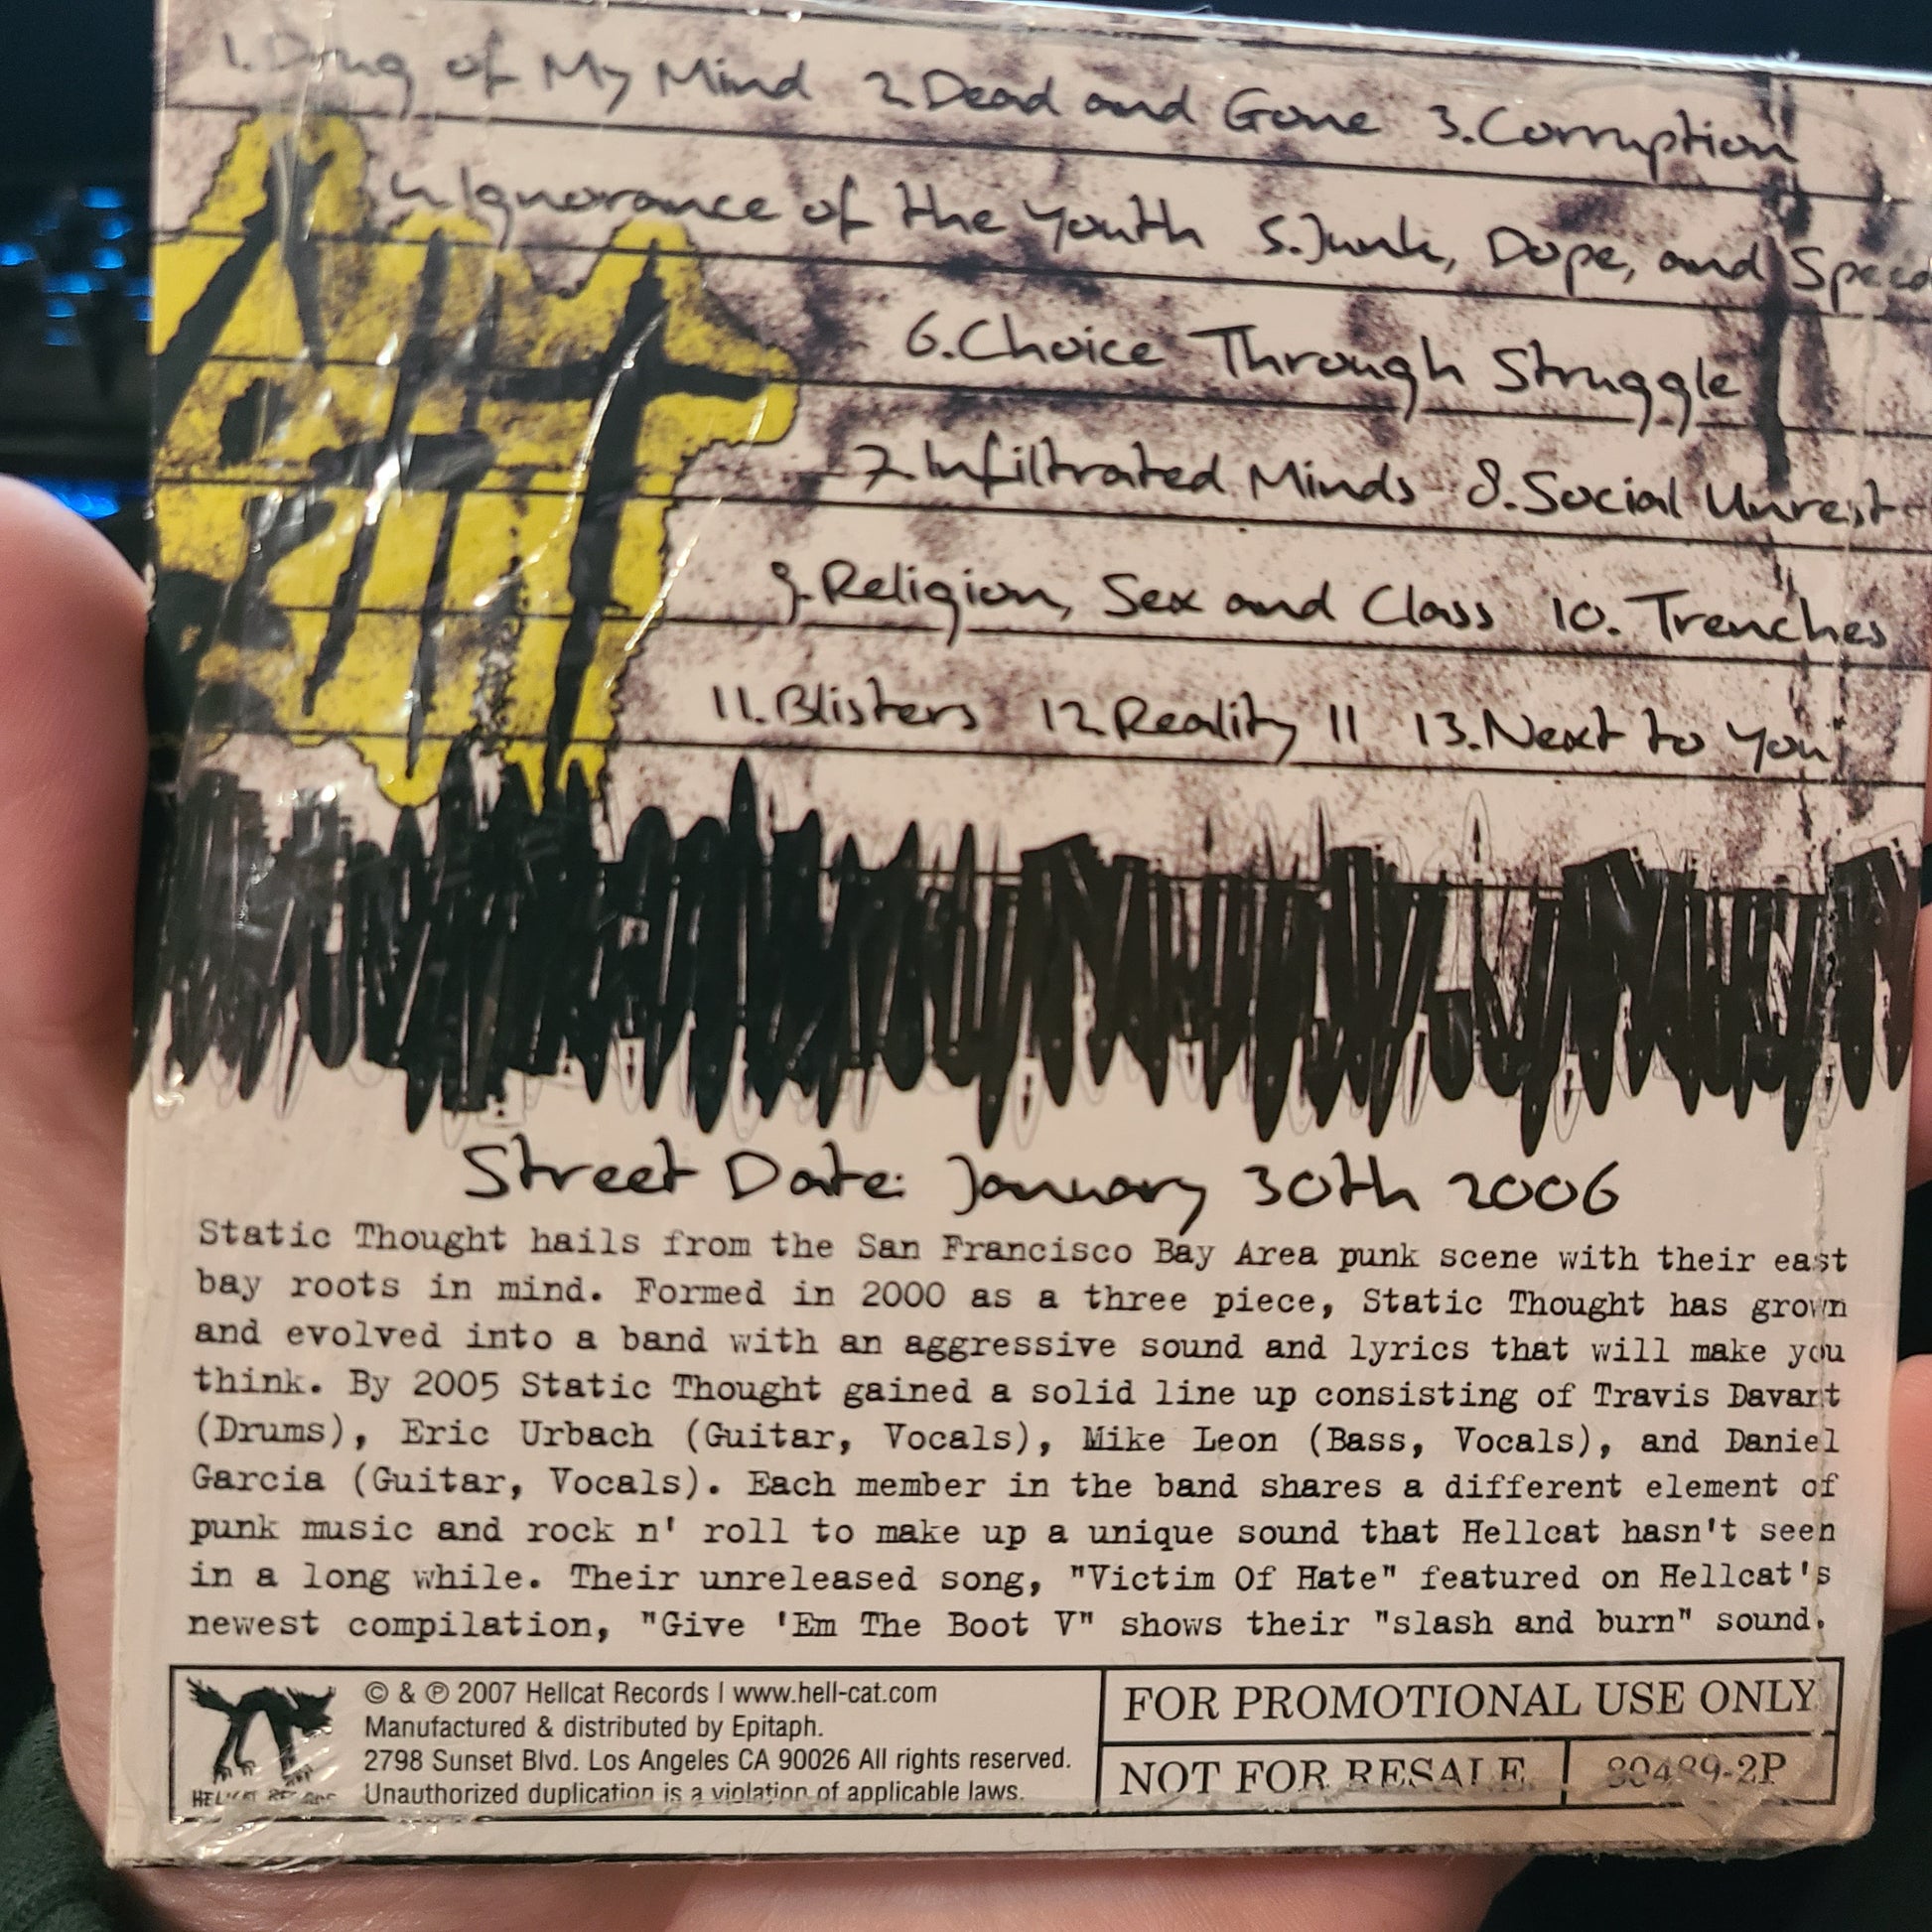 1.Drug of My Mind 2.Dead and Gone 3.Corruption
4.Ignorance of the Youth 5.Junk, Dope, and Speed
6.Choice Through Struggle
7.Infiltrated Minds 8.Social Unrest
9.Religion, Sex and Class 10. Trenches
11.Blisters 12.Reality 11 13.Next to You
Street Date: January 30th 2006
Static Thought hails from the San Francisco Bay Area punk scene with their east
bay roots in mind. Formed in 2000 as a three piece, Static Thought has grown
and evolved into a band with an aggressive sound and lyrics that will make you
think. By 2005 Static Thought gained a solid line up consisting of Travis Davart
(Drums), Eric Urbach (Guitar, Vocals), Mike Leon (Bass, Vocals), and Daniel
Garcia (Guitar, Vocals). Each member in the band shares a different element of
punk music and rock n' roll to make up a unique sound that Hellcat hasn't seen
in a long while. Their unreleased song, "Victim Of Hate" featured on Hellcat's
newest compilation, "Give 'Em The Boot V" shows their "slash and burn" sound.
© & ℗ 2007 Hellcat Records | www.hell-cat.com
Manufactured & distributed by Epitaph.
2798 Sunset Blvd. Los Angeles CA 90026 All rights reserved.
Unauthorized duplication is a violation of applicable laws.
HELLCAT RECORDS
FOR PROMOTIONAL USE ONLY
NOT FOR RESALE 80489-2P